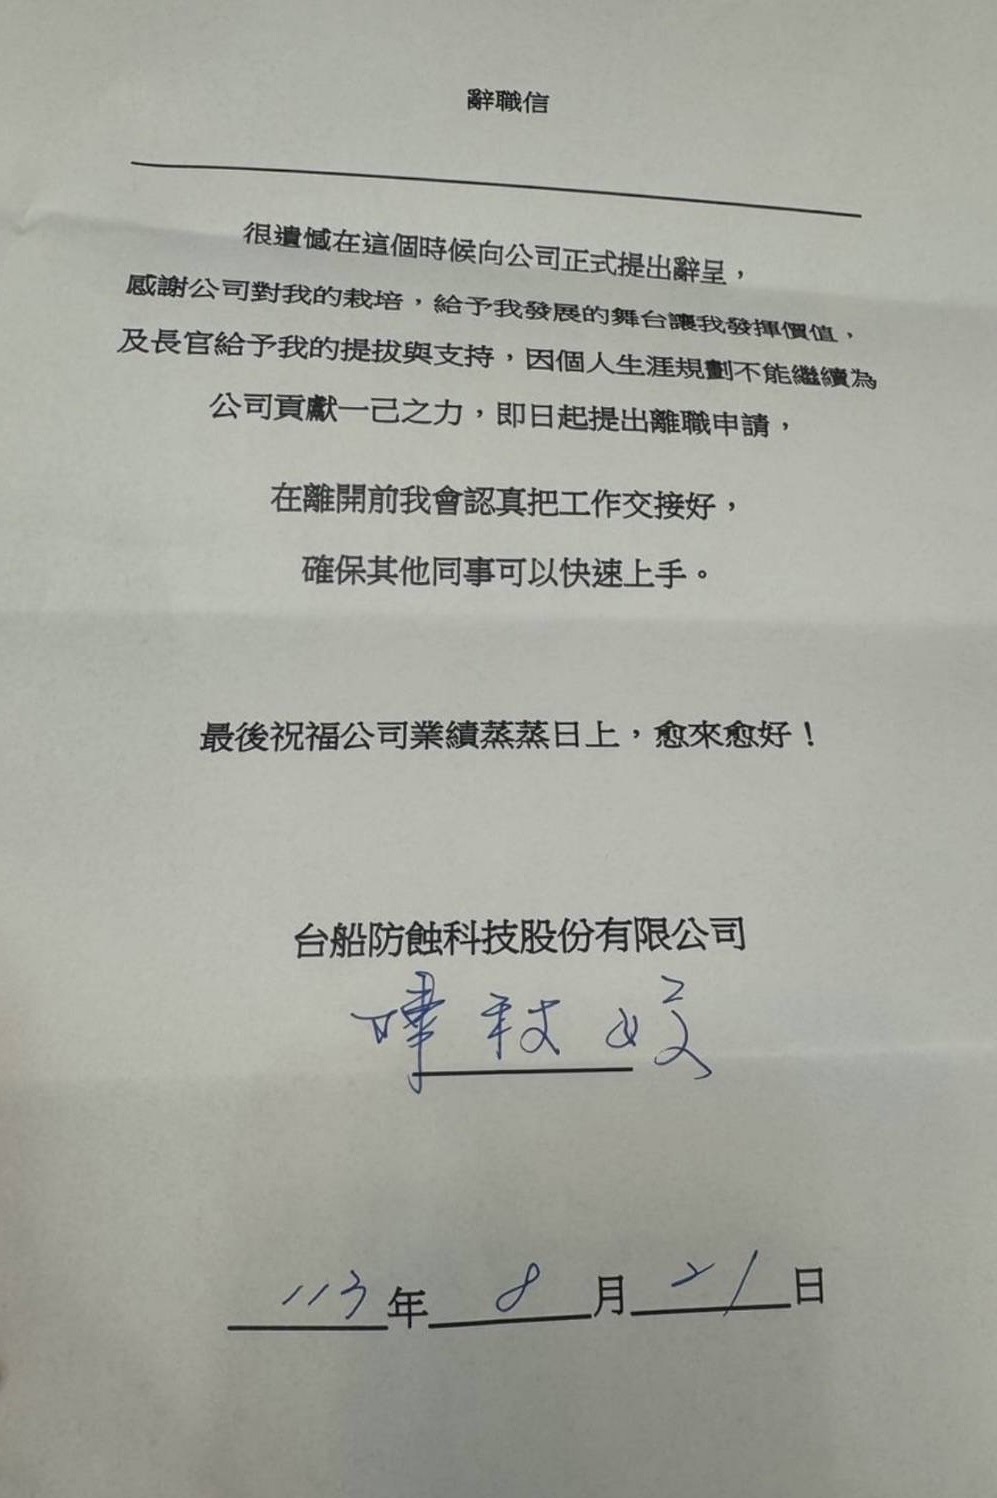 辭職信
很遺憾在這個時候向公司正式提出辭呈，
感謝公司對我的栽培，給予我發展的舞台讓我發揮價值，
及長官給予我的提拔與支持，因個人生涯規劃不能繼續為
公司貢獻一己之力，即日起提出離職申請，
在離開前我會認真把工作交接好，
確保其他同事可以快速上手。
最後祝福公司業績蒸蒸日上，愈來愈好！
台船防蝕科技股份有限公司
113年8月21日